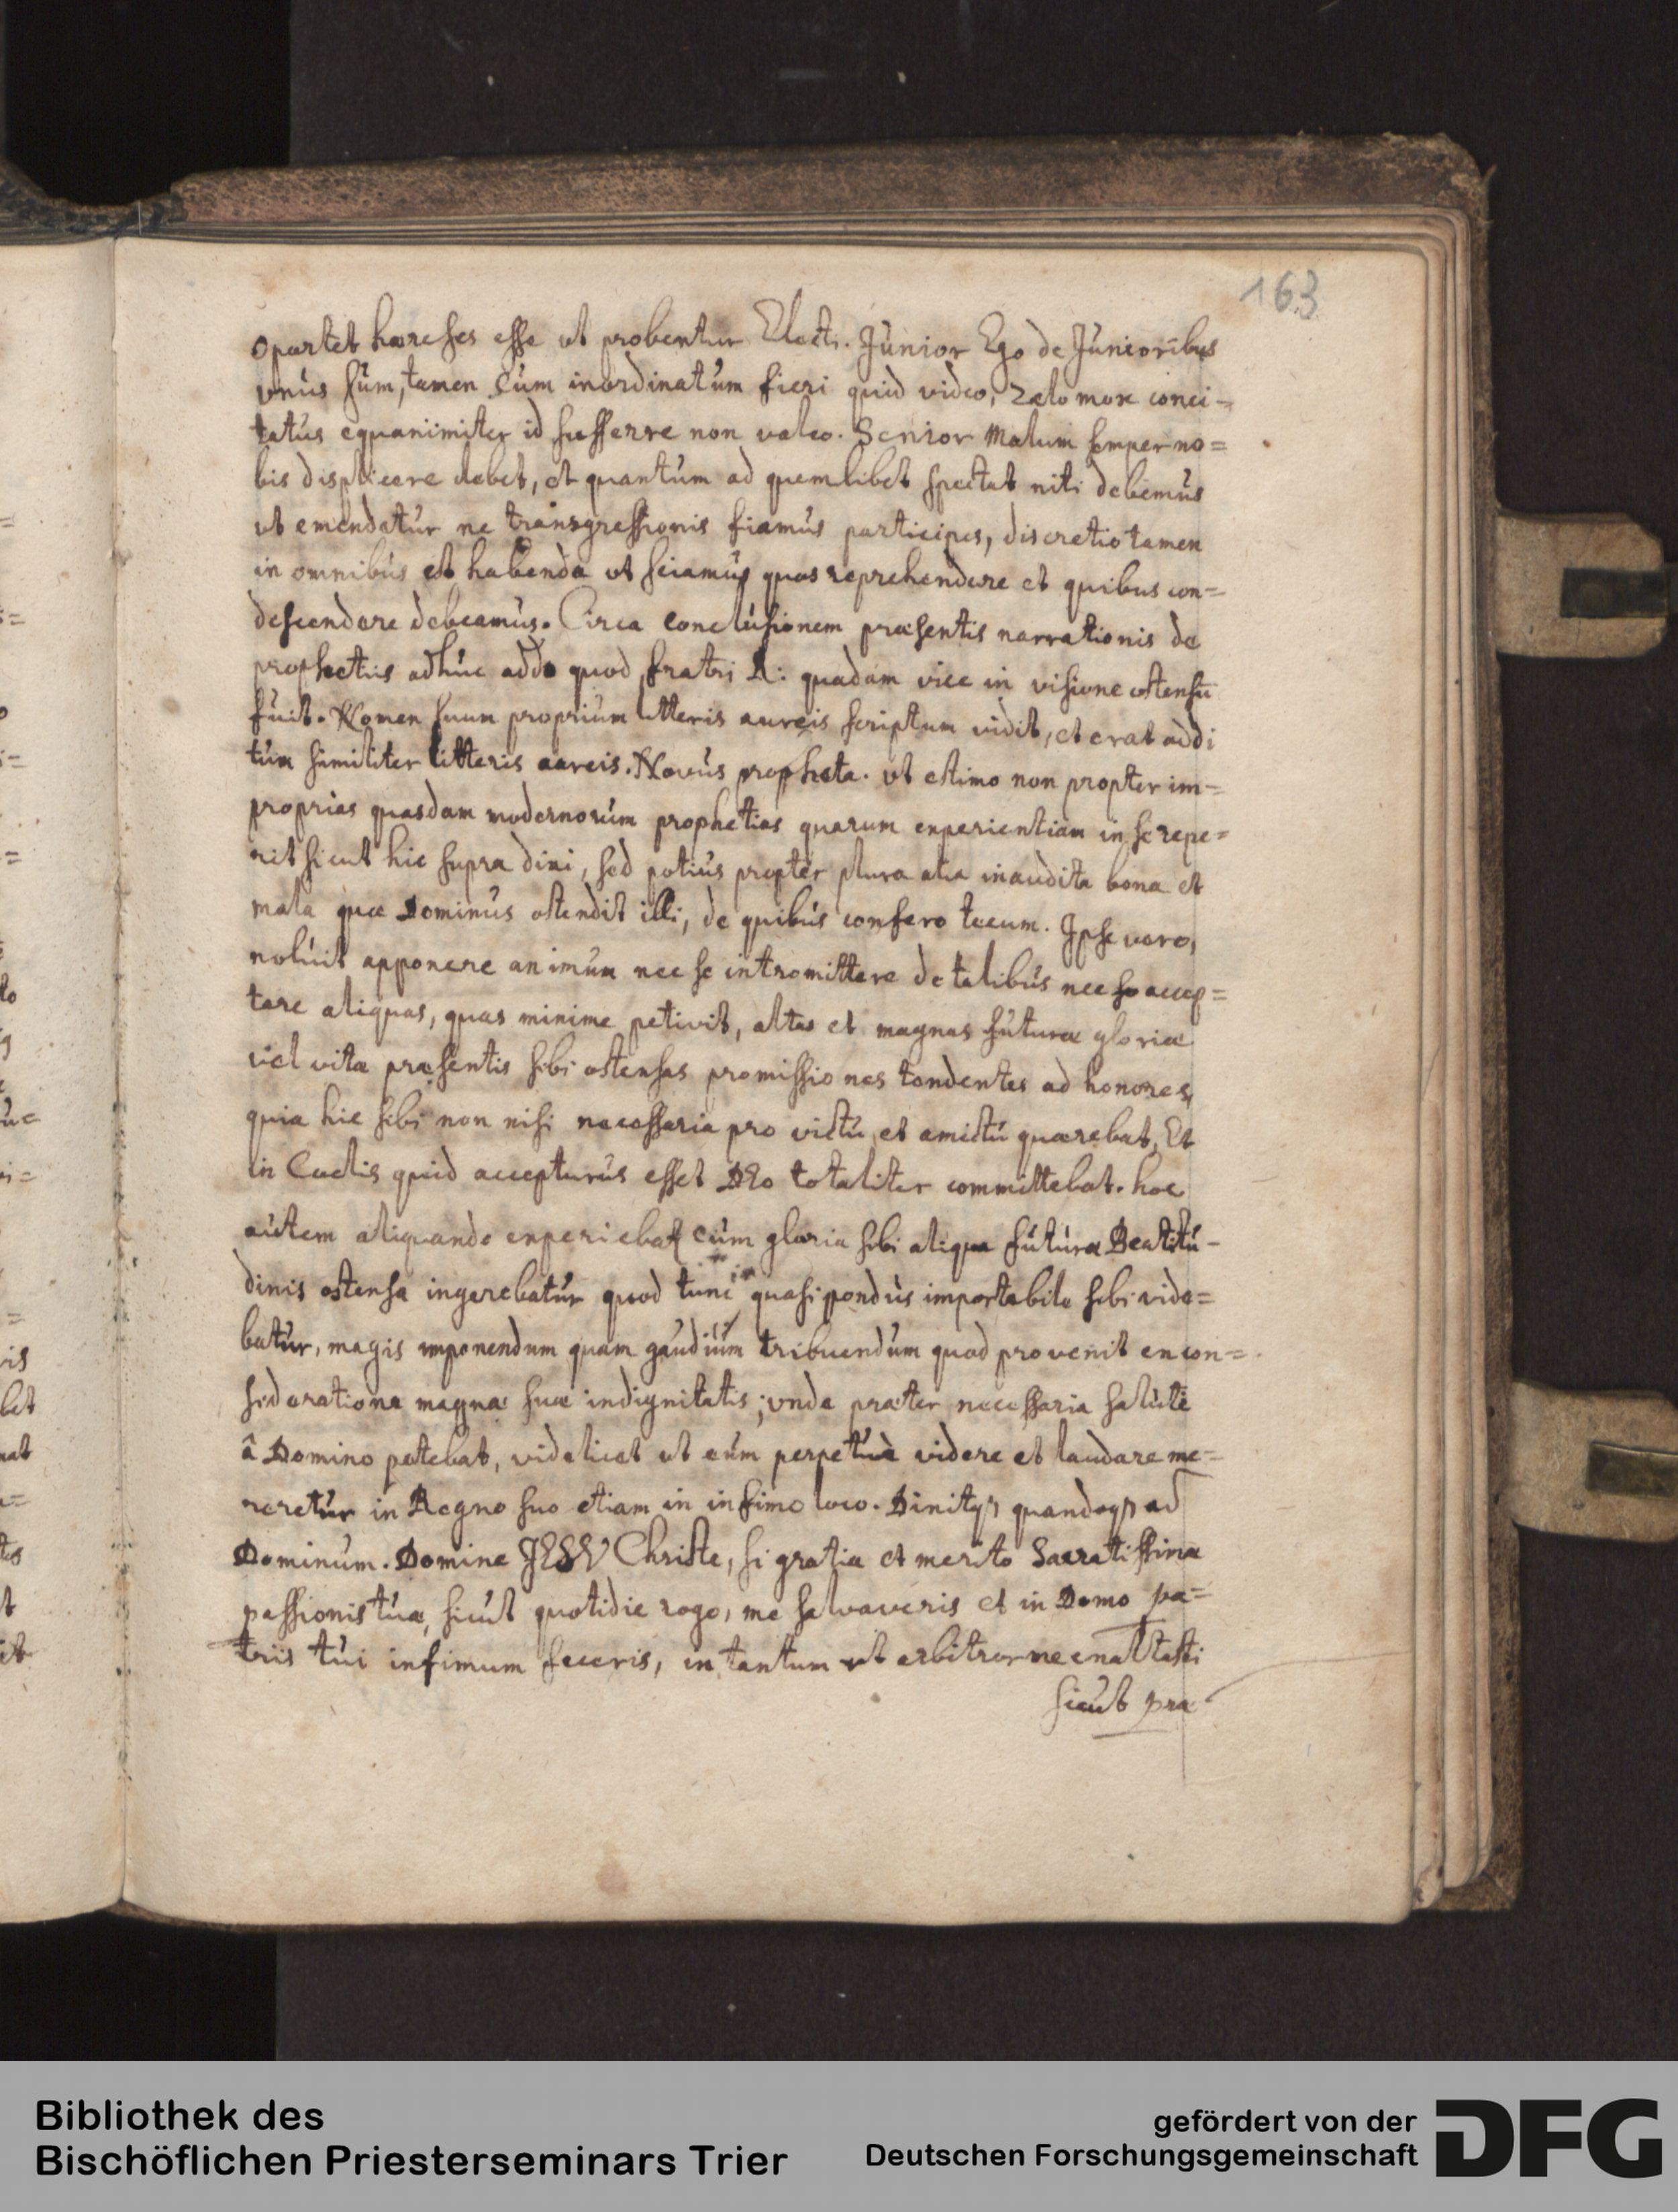 163
oportet hæreses esse ut probentur Electi. Junior Ego de Junioribus
vnus sum, tamen cum inordinatum fieri quid video, zelo mox conci-
tatus equanimiter id sufferre non valeo. Senior Malum semper no=
bis displicere debet, et quantum ad quemlibet spectat niti debemus
ut emendetur ne transgressionis fiamus participes, discretio tamen
in omnibus est habenda ut sciamus quos reprehendere et quibus con=
descendere debeamus. Circa conclusionem præsentis narrationis de
prophetiis adhuc addo quod fratri R: quadam vice in visione ostensū
fuit. Nomen suum proprium litteris aureis scriptum vidit, et erat addi
tum similiter litteris aureis. Novus propheta. ut estimo non propter im-
proprias quasdam modernorum prophetias quarum experientiam in se repe=
rit sicut hic supra dixi, sed potius propter plura alia inaudita bona et
mala quæ Dominus ostendit illi, de quibus confero tecum. Ipse vero,
noluit apponere animum nec se intromittere de talibus nec se accep=
tare aliquas, quas minime petivit, altas et magnas futuræ gloriæ
vel vitæ præsentis sibi ostensas promissiones tendentes ad honores,
quia hic sibi non nisi necessaria pro victu et amictu quærebat, Et
in Cœlis quid accepturus esset DEo totaliter committebat. hoc
autem aliquando experiebat cum gloria sibi aliqua futuræ Beatitu-
dinis ostensa ingerebatur quod tunc quasi pondus importabile sibi vide=
batur, magis imponendum quam gaudium tribuendum quod provenit ex con=
sideratione magnæ suæ indignitatis; vnde præter necessaria saluti
â Domino petebat, videlicet ut eum perpetuè videre et laudare me=
reretur in Regno suo etiam in infimo loco. Dixitqȝ quandoqȝ ad
Dominum. Domine JESV Christe, si gratia et merito Sacratissimæ
passionis tuæ, sicut quotidie rogo, me salvaveris et in Domo pa=
tris tui infimum feceris, in tantum ut arbitror me exaltasti
sicut præ
Bibliothek des
Bischöflichen Priesterseminars Trier
gefördert von der
Deutschen Forschungsgemeinschaft
DFG